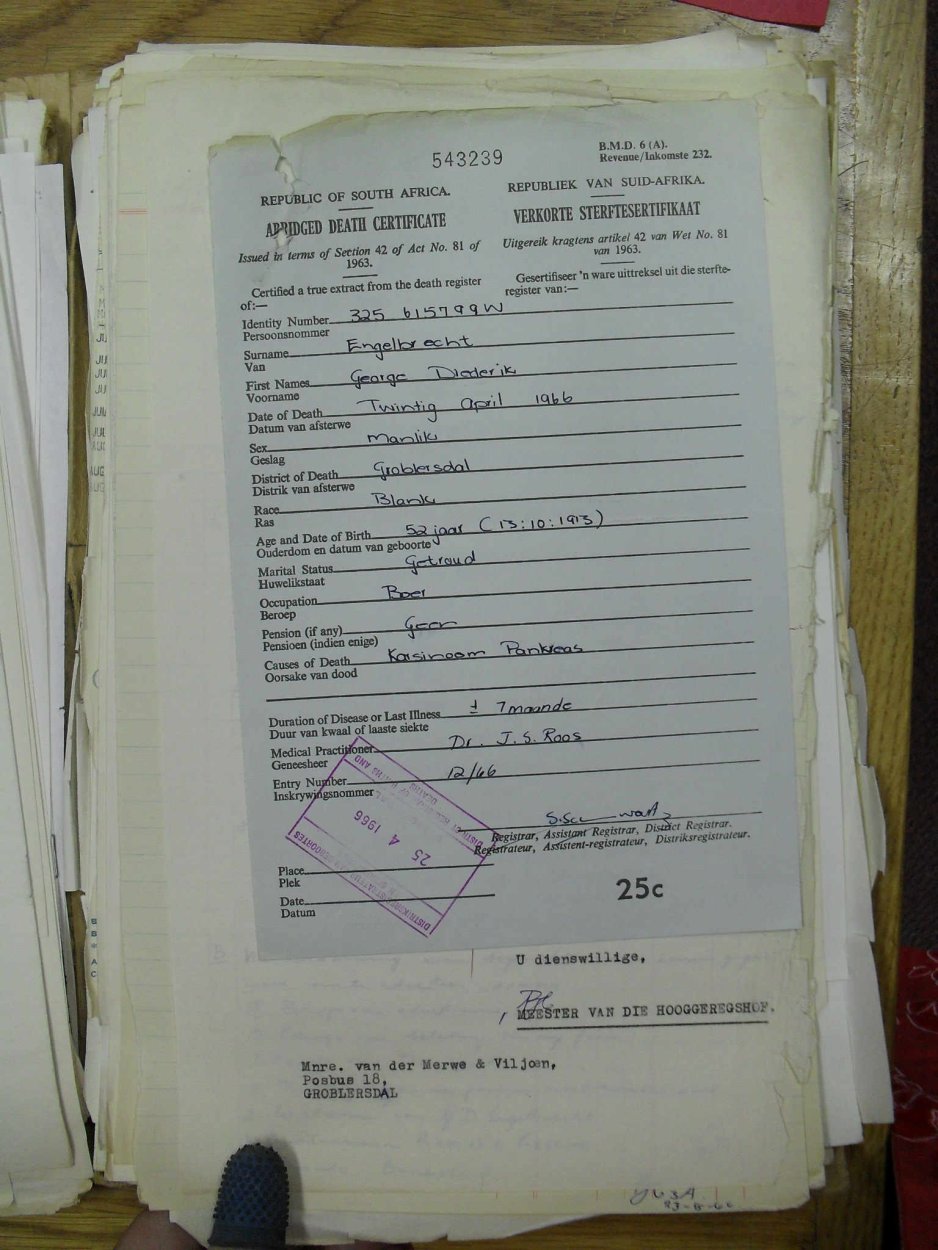 543239
B.M.D. 6 (A).
Revenue/Inkomste 232.
REPUBLIC OF SOUTH AFRICA.
ABRIDGED DEATH CERTIFICATE
Issued in terms of Section 42 of Act No. 81 of
1963.
Certified a true extract from the death register
of:—
REPUBLIEK VAN SUID-AFRIKA.
VERKORTE STERFTESERTIFIKAAT
Uitgereik kragtens artikel 42 van Wet No. 81
van 1963.
Gesertifiseer 'n ware uittreksel uit die sterfte-
register van:—
Identity Number 325 615799W
Persoonsnommer
Surname Engelbrecht
Van
First Names George Diederik
Voorname
Date of Death Twintig April 1966
Datum van afsterwe
Sex Manlik
Geslag
District of Death Groblersdal
Distrik van afsterwe
Race Blank
Ras
Age and Date of Birth 52 jaar (13:10:1913)
Ouderdom en datum van geboorte
Marital Status Getroud
Huwelikstaat
Occupation Boer
Beroep
Pension (if any) Geen
Pensioen (indien enige)
Causes of Death Karsinoom Pankreas
Oorsake van dood
Duration of Disease or Last Illness ± 7 maande
Duur van kwaal of laaste siekte
Medical Practitioner Dr. J. S. Roos
Geneesheer
Entry Number 12/66
Inskrywingsnommer
25 4 1966
Registrar, Assistant Registrar, District Registrar.
Registrateur, Assistent-registrateur, Distriksregistrateur.
Place
Plek
Date
Datum
25c
U dienswillige,
MEESTER VAN DIE HOOGGEREGSHOF.
Mnre. van der Merwe & Viljoen,
Posbus 18,
GROBLERSDAL